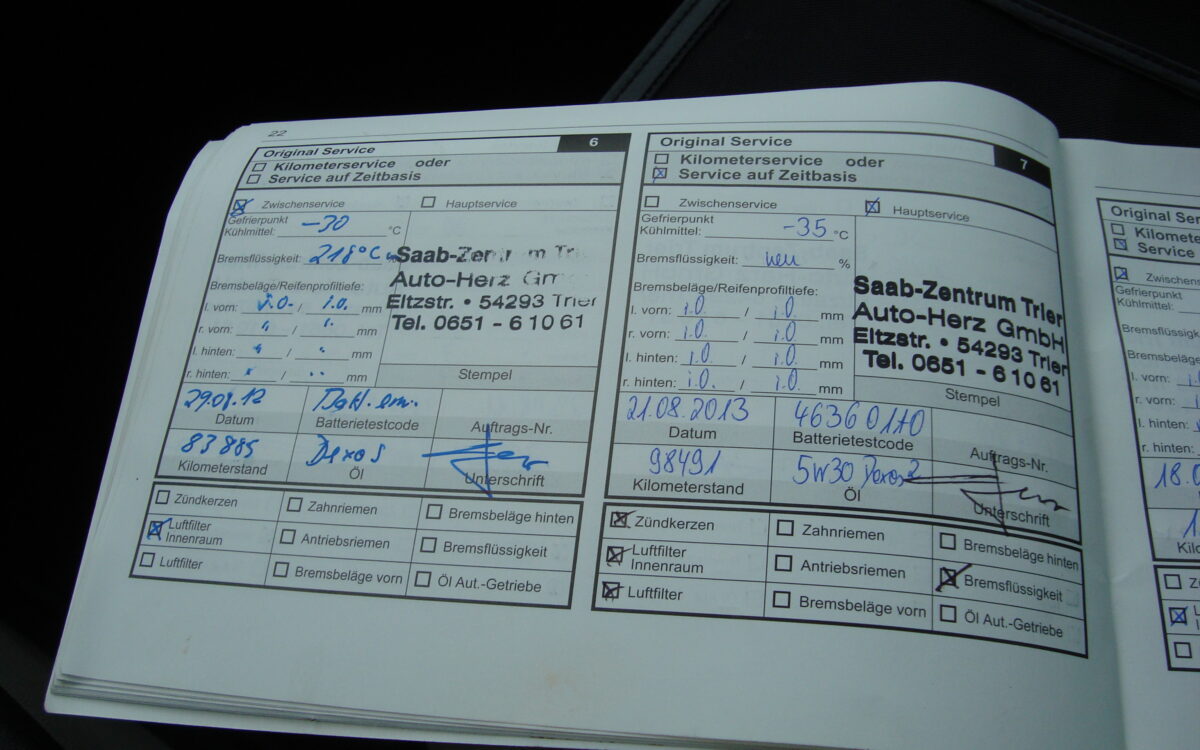 22
Original Service 6
Kilometerservice oder
Service auf Zeitbasis
Zwischenservice Hauptservice
Gefrierpunkt
Kühlmittel: -30 °C
Bremsflüssigkeit: 218°C
Bremsbeläge/Reifenprofiltiefe:
l. vorn: i.O. / i.O. mm
r. vorn: " / " mm
l. hinten: " / " mm
r. hinten: " / " mm
Saab-Zentrum Trier
Auto-Herz GmbH
Eltzstr. • 54293 Trier
Tel. 0651 - 6 10 61
Stempel
29.08.12
Datum Batterietestcode Auftrags-Nr.
83885 Dexos
Kilometerstand Öl Unterschrift
Zündkerzen Zahnriemen Bremsbeläge hinten
Luftfilter
Innenraum Antriebsriemen Bremsflüssigkeit
Luftfilter Bremsbeläge vorn Öl Aut.-Getriebe
Original Service 7
Kilometerservice oder
Service auf Zeitbasis
Zwischenservice Hauptservice
Gefrierpunkt
Kühlmittel: -35 °C
Bremsflüssigkeit: neu %
Bremsbeläge/Reifenprofiltiefe:
l. vorn: i.O. / i.O. mm
r. vorn: i.O. / i.O. mm
l. hinten: i.O. / i.O. mm
r. hinten: i.O. / i.O. mm
Saab-Zentrum Trier
Auto-Herz GmbH
Eltzstr. • 54293 Trier
Tel. 0651 - 6 10 61
Stempel
21.08.2013
Datum Batterietestcode Auftrags-Nr.
98491 5W30 Dexos2
Kilometerstand Öl Unterschrift
Zündkerzen Zahnriemen Bremsbeläge hinten
Luftfilter
Innenraum Antriebsriemen Bremsflüssigkeit
Luftfilter Bremsbeläge vorn Öl Aut.-Getriebe
Original
Service
Gefrierpunkt
l. vorn:
r. vorn:
l. hinten:
r. hinten: